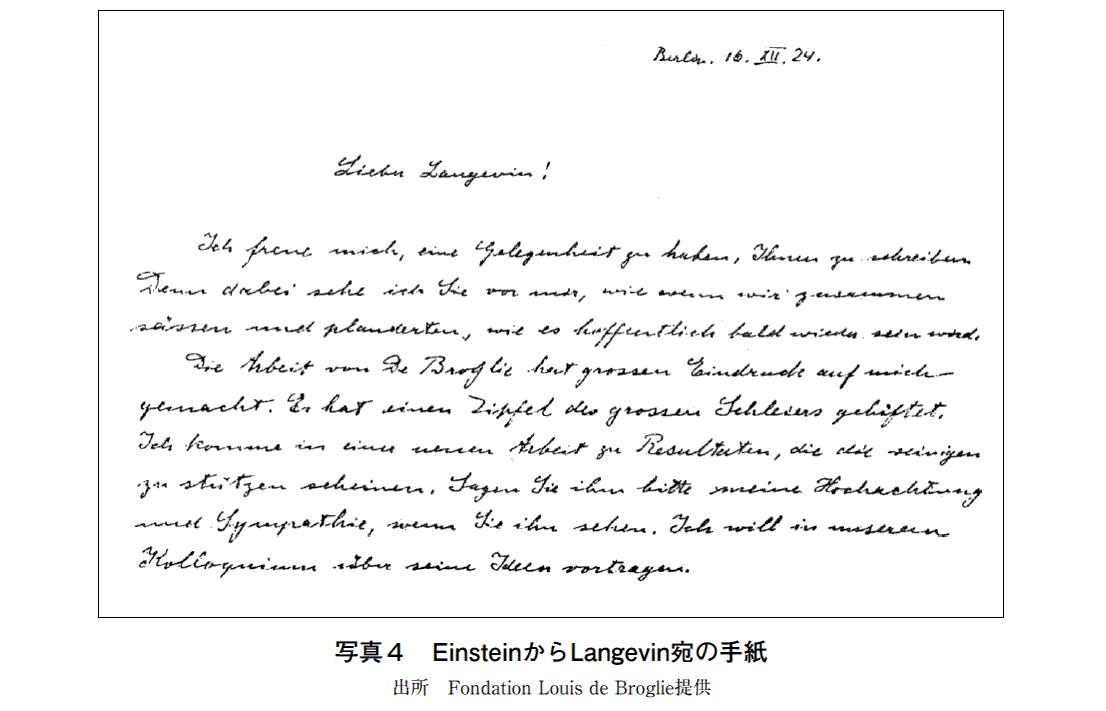 Berlin. 16. XII. 24.
Lieber Langevin!
Ich freue mich, eine Gelegenheit zu haben, Ihnen zu schreiben
Denn dabei sehe ich Sie vor mir, wie wenn wir zusammen
sässen und plauderten, wie es hoffentlich bald wieder sein wird.
Die Arbeit von De Broglie hat grossen Eindruck auf mich
gemacht. Er hat einen Zipfel des grossen Schleiers gelüftet.
Ich komme in einer neuen Arbeit zu Resultaten, die die seinigen
zu stützen scheinen. Sagen Sie ihm bitte meine Hochachtung
und Sympathie, wenn Sie ihn sehen. Ich will in unserem
Kolloquium über seine Ideen vortragen.
写真4 EinsteinからLangevin宛の手紙
出所 Fondation Louis de Broglie提供